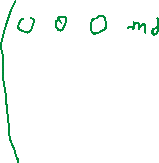 0 0 0 md